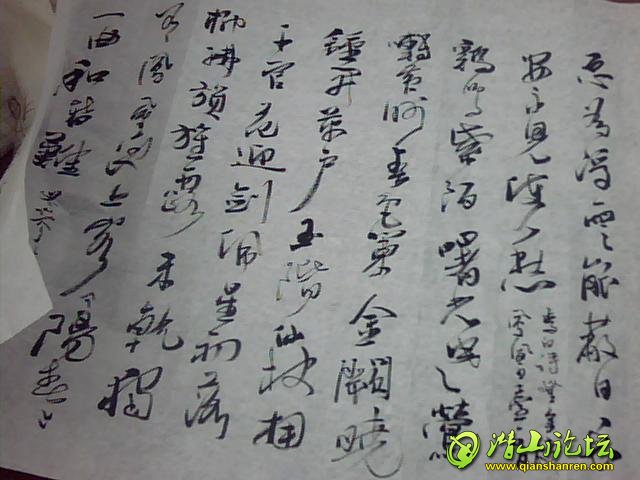 总为浮云能蔽日长
安不见使人愁
鷄鸣紫陌曙光寒鶯
囀皇州春色闌金闕曉
鍾开萬户玉階仙仗拥
千官花迎剑佩星初落
柳拂旌旗露未乾獨
有鳳凰池上客陽春
一曲和皆难
潜山论坛
www.qianshanren.com